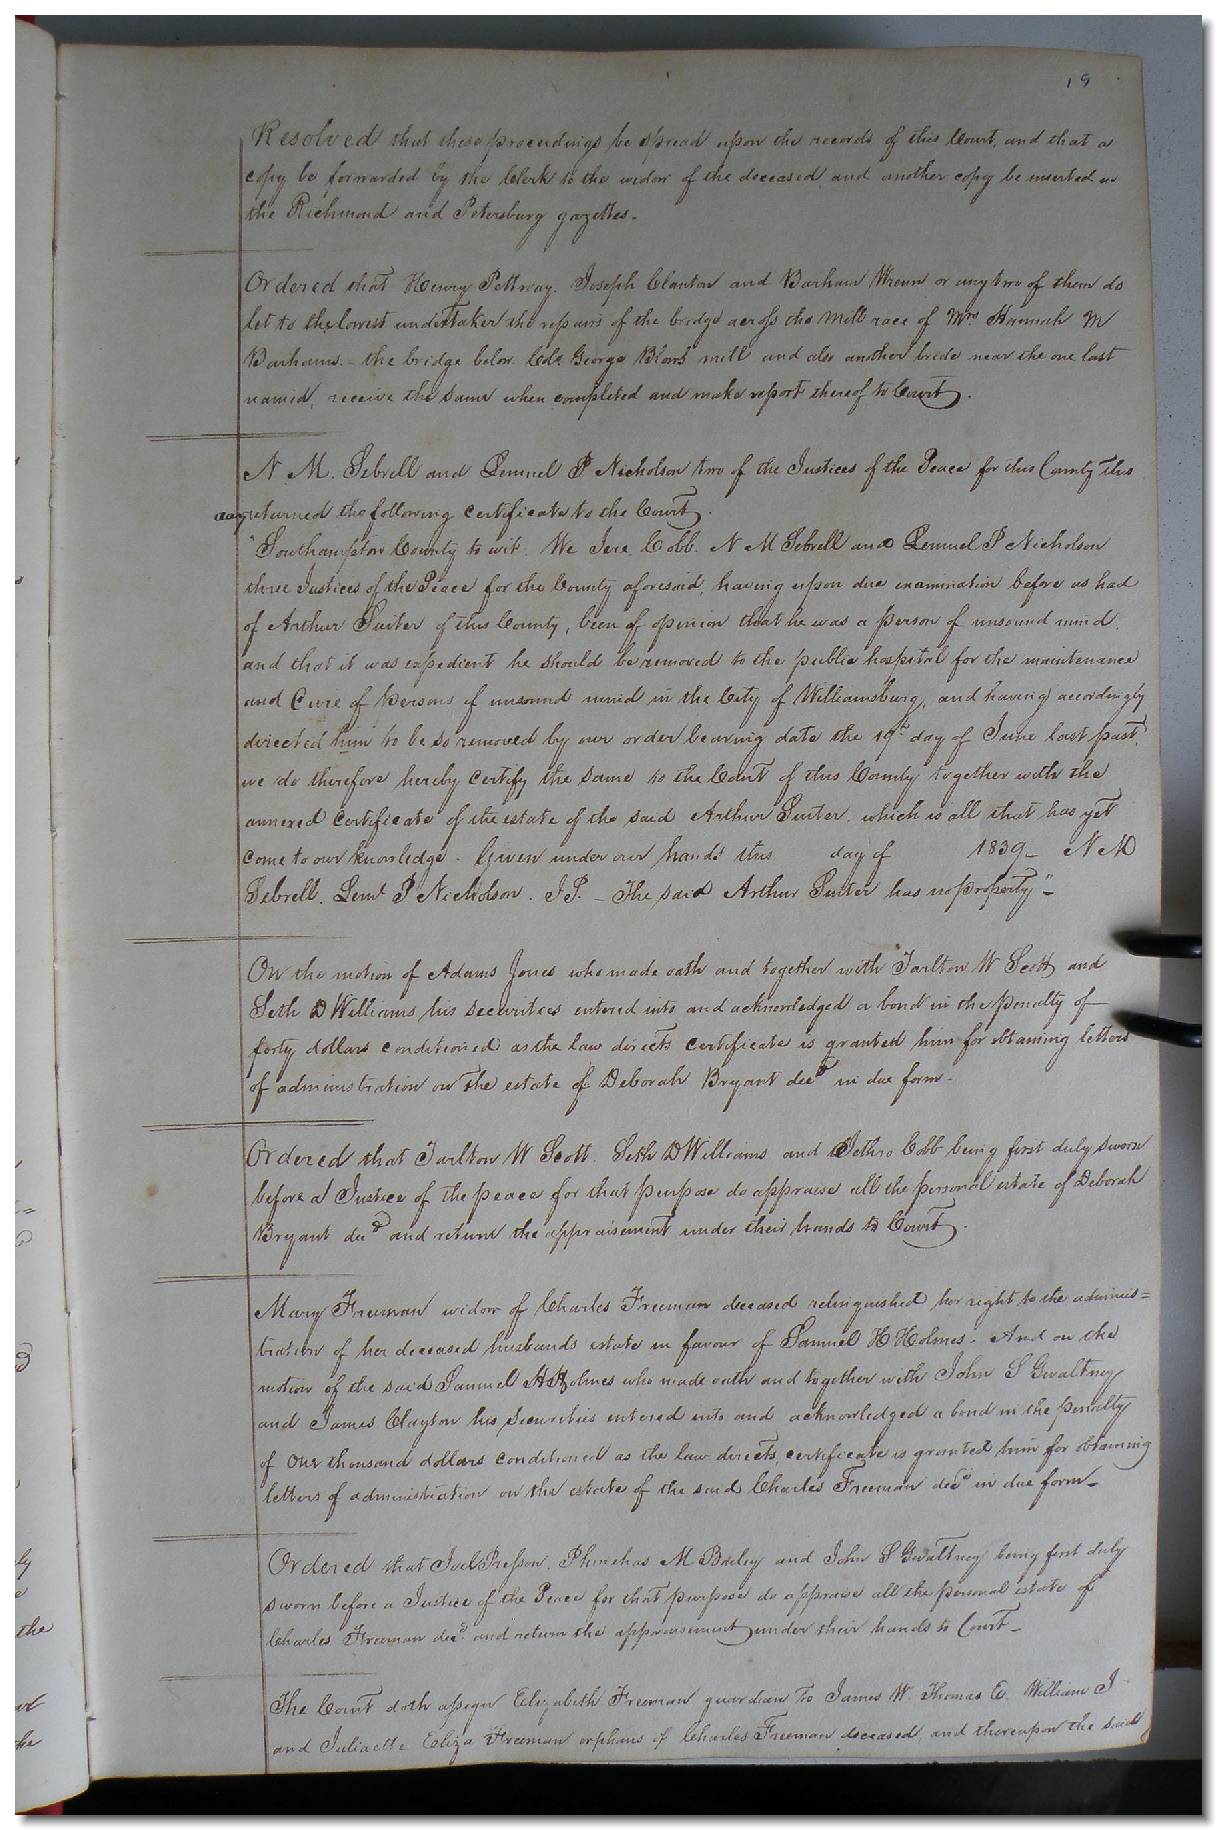 19
Resolved that these proceedings be spread upon the records of this Court, and that a
copy be forwarded by the Clerk to the widow of the deceased, and another copy be inserted in
the Richmond and Petersburg gazettes.
Ordered that Henry Pettway, Joseph Clanton and Barham Wrenn or any two of them do
let to the lowest undertaker the repairs of the bridge across the Mill race of Mrs Hannah M
Barhams. - the bridge below Col. George Blows mill and also another bride near the one last
named, receive the same when completed and make report thereof to Court.
N M. Sebrell and Lemuel P Nicholson two of the Justices of the Peace for this County this
day returned the following certificate to the Court.
"Southampton County to wit. We Jere. Cobb. N M Sebrell and Lemuel P Nicholson
three Justices of the Peace for the County aforesaid, having upon due examination before us had
of Arthur Suiter of this County, been of opinion that he was a person of unsound mind,
and that it was expedient he should be removed to the public hospital for the maintenance
and Cure of persons of unsound mind in the City of Williamsburg, and having accordingly
directed him to be so removed by our order bearing date the 19th day of June last past,
we do therefore hereby certify the same to the Court of this County together with the
annexed Certificate of the estate of the said Arthur Suiter, which is all that has yet
come to our knowledge. Given under our hands this day of 1839 - N M
Sebrell. Leml P Nicholson. J.P. - The said Arthur Suiter has no property" -
On the motion of Adams Jones who made oath and together with Tarlton W Scott and
Seth D Williams his securities entered into and acknowledged a bond in the penalty of
forty dollars conditioned as the law directs certificate is granted him for obtaining letters
of administration on the estate of Deborah Bryant decd in due form.
Ordered that Tarlton W Scott. Seth D Williams and Jethro Cobb being first duly sworn
before a Justice of the peace for that purpose do appraise all the personal estate of Deborah
Bryant decd and return the appraisement under their hands to Court.
Mary Freeman widow of Charles Freeman deceased relinquished her right to the adminis=
tration of her deceased husbands estate in favour of Samuel H Holmes. And on the
motion of the said Samuel H Holmes who made oath and together with John S Gwaltney
and James Clayton his securities entered into and acknowledged a bond in the penalty
of One thousand dollars conditioned as the law directs, certificate is granted him for obtaining
letters of administration on the estate of the said Charles Freeman decd in due form -
Ordered that Joel Presson, Phinehas M Bailey and John S Gwaltney being first duly
sworn before a Justice of the Peace for that purpose do appraise all the personal estate of
Charles Freeman decd and return the appraisement under their hands to Court -
The Court doth assign Elizabeth Freeman guardian to James W. Thomas E. William J
and Juliaette Eliza Freeman orphans of Charles Freeman deceased, and thereupon the said